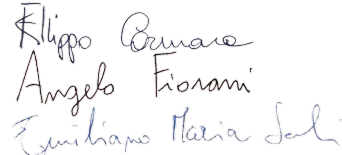 Filippo Cornara
Angelo Fiorani
Emiliano Maria